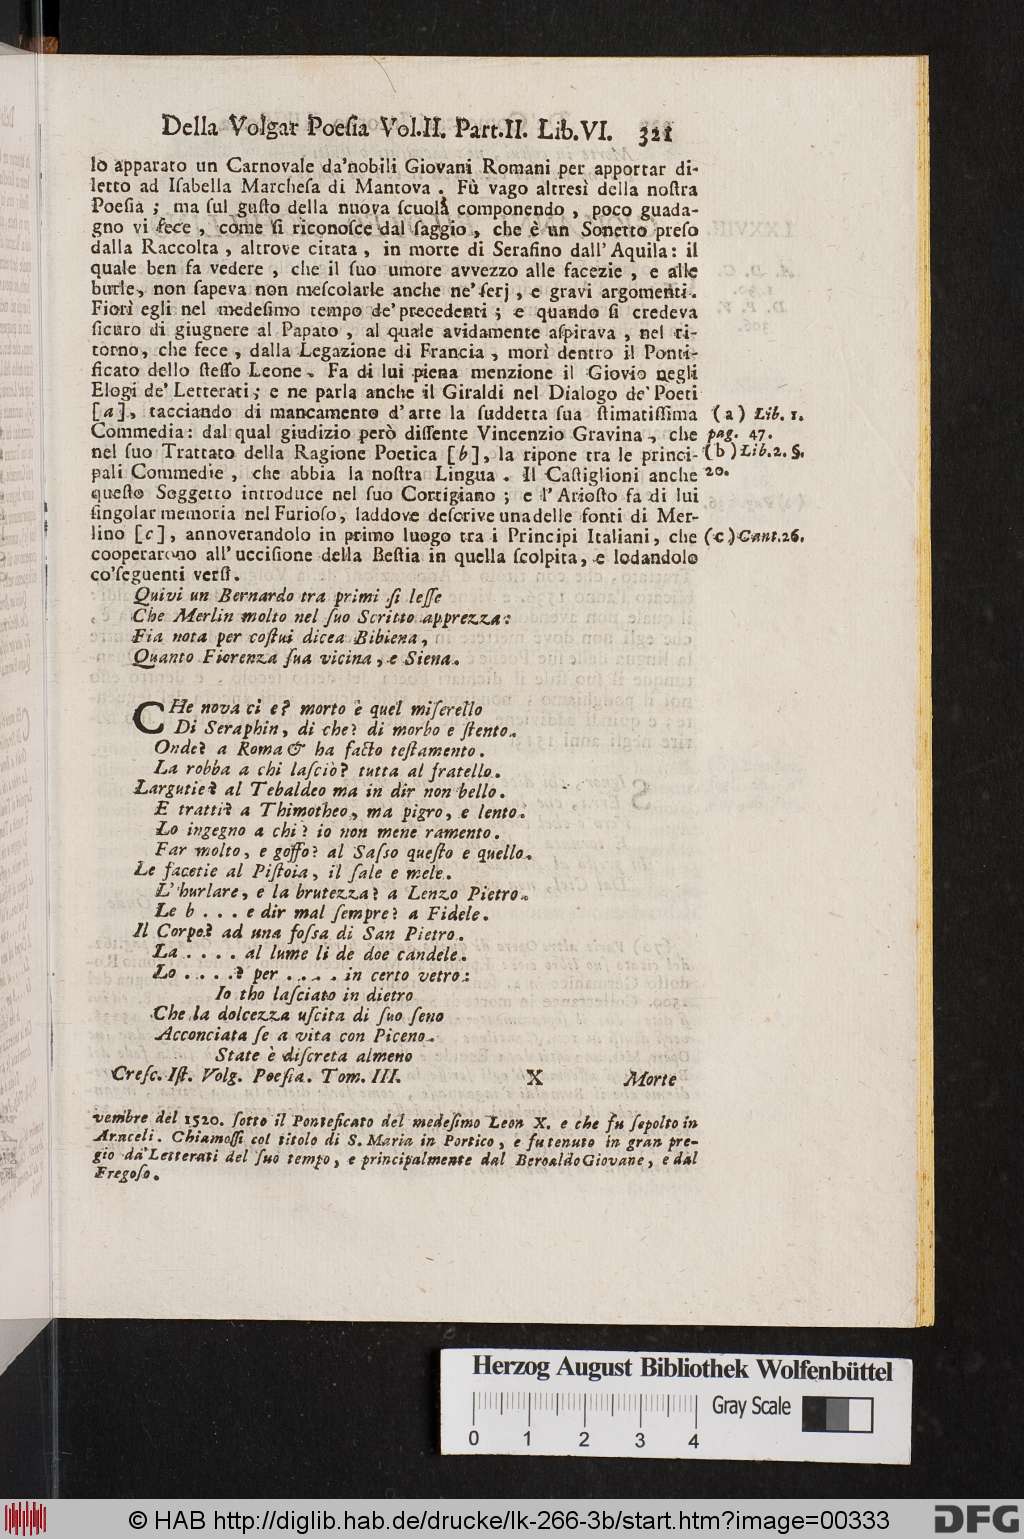 Della Volgar Poeſia Vol.II. Part.II. Lib.VI. 321
lo apparato un Carnovale da'nobili Giovani Romani per apportar di-
letto ad Iſabella Marcheſa di Mantova . Fù vago altresì della noſtra
Poeſia ; ma ſul guſto della nuova ſcuola componendo , poco guada-
gno vi fece , come ſi riconoſce dal ſaggio , che è un Sonetto preſo
dalla Raccolta , altrove citata , in morte di Serafino dall' Aquila : il
quale ben fa vedere , che il ſuo umore avvezzo alle facezie , e alle
burle, non ſapeva non meſcolarle anche ne' ſerj , e gravi argomenti.
Fiorì egli nel medeſimo tempo de' precedenti ; e quando ſi credeva
ſicuro di giugnere al Papato , al quale avidamente aſpirava , nel ri-
torno, che fece , dalla Legazione di Francia , morì dentro il Ponti-
ficato dello ſteſſo Leone. Fa di lui piena menzione il Giovio negli
Elogi de' Letterati ; e ne parla anche il Giraldi nel Dialogo de' Poeti
[a], tacciando di mancamento d' arte la ſuddetta ſua ſtimatiſſima
(a) Lib. 1.
Commedia: dal qual giudizio però diſſente Vincenzio Gravina , che
pag. 47.
nel ſuo Trattato della Ragione Poetica [b], la ripone tra le princi-
(b) Lib.2. §.
pali Commedie , che abbia la noſtra Lingua . Il Caſtiglioni anche
20.
queſto Soggetto introduce nel ſuo Cortigiano ; e l' Arioſto fa di lui
ſingolar memoria nel Furioſo, laddove deſcrive una delle fonti di Mer-
lino [c], annoverandolo in primo luogo tra i Principi Italiani, che
(c) Cant.26.
cooperarono all' ucciſione della Beſtia in quella ſcolpita, e lodandolo
co'ſeguenti verſi.
Quivi un Bernardo tra primi ſi leſſe
Che Merlin molto nel ſuo Scritto apprezza:
Fia nota per coſtui dicea Bibiena,
Quanto Fiorenza ſua vicina, e Siena.
CHe nova ci e? morto è quel miſerello
Di Seraphin, di che? di morbo e ſtento.
Onde? a Roma & ha facto teſtamento.
La robba a chi laſciò? tutta al fratello.
Largutie? al Tebaldeo ma in dir non bello.
E tratti? a Thimotheo, ma pigro, e lento.
Lo ingegno a chi? io non mene ramento.
Far molto, e goffo? al Saſso queſto e quello.
Le facetie al Piſtoia, il ſale e mele.
L' burlare, e la brutezza? a Lenzo Pietro.
Le b . . . e dir mal ſempre? a Fidele.
Il Corpo? ad una foſsa di San Pietro.
La . . . . al lume li de doe candele.
Lo . . . .? per . . . . in certo vetro:
Io tho laſciato in dietro
Che la dolcezza uſcita di ſuo ſeno
Acconciata ſe a vita con Piceno.
State è diſcreta almeno
Creſc. Iſt. Volg. Poeſia. Tom. III. X Morte
vembre del 1520. ſotto il Ponteficato del medeſimo Leon X. e che fu ſepolto in
Araceli. Chiamoſſi col titolo di S. Maria in Portico, e fu tenuto in gran pre-
gio da' Letterati del ſuo tempo, e principalmente dal Beroaldo Giovane, e dal
Fregoſo.
Herzog August Bibliothek Wolfenbüttel
Gray Scale
0 1 2 3 4
© HAB http://diglib.hab.de/drucke/lk-266-3b/start.htm?image=00333
DFG